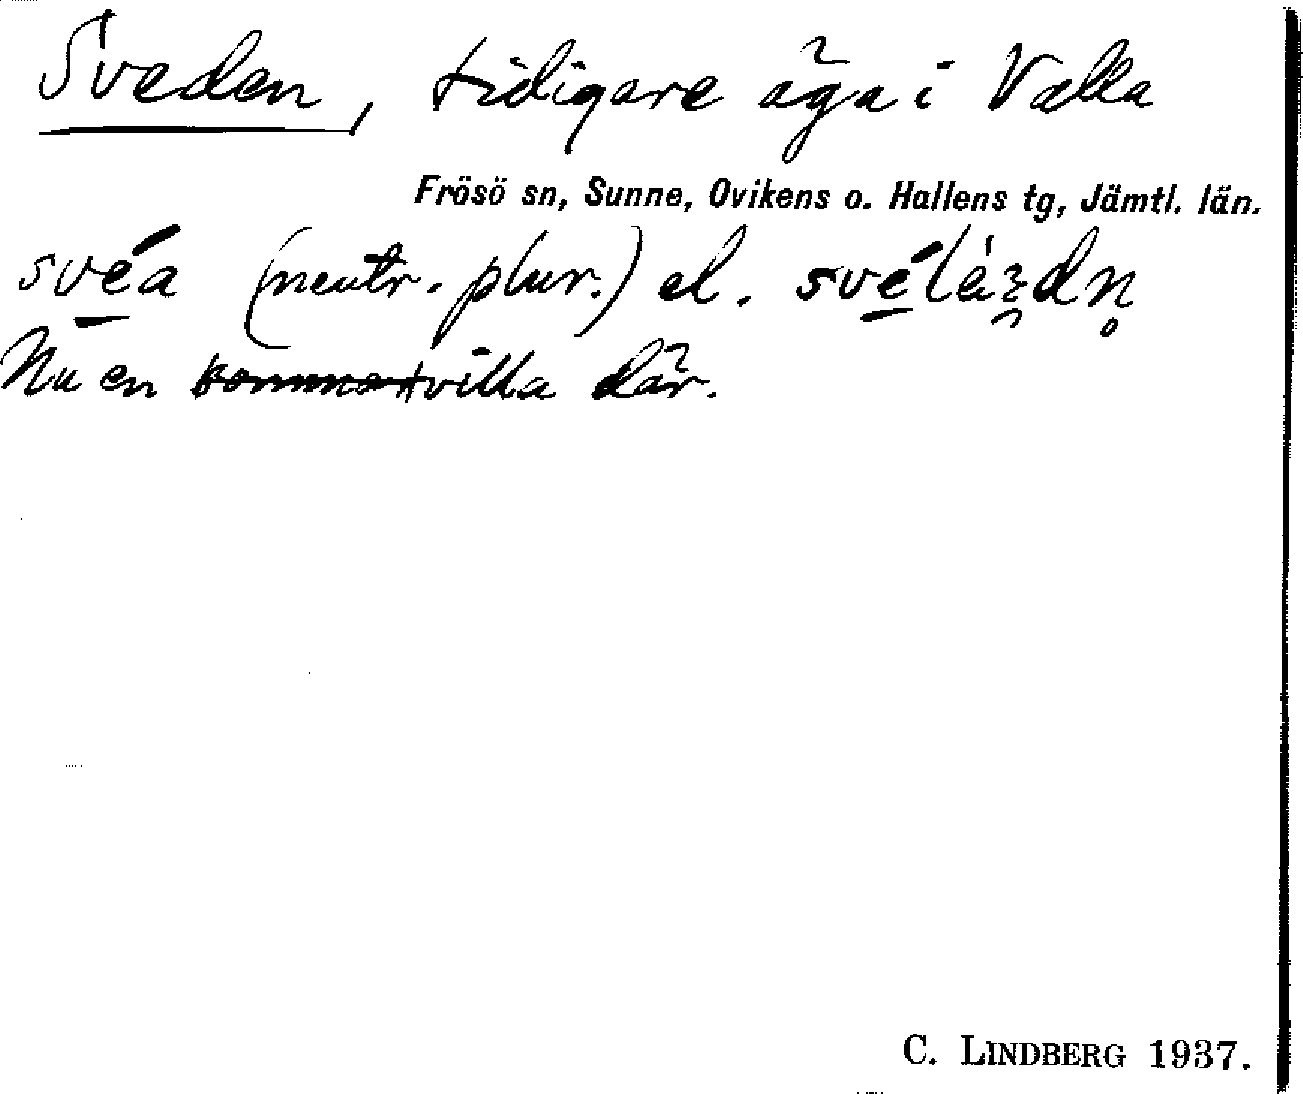 Sveden, tidigare äga i Valla
Frösö sn, Sunne, Ovikens o. Hallens tg, Jämtl. län.
svéa (neutr. plur.) el.
Nu en sommarvilla där.
C. LINDBERG 1937.